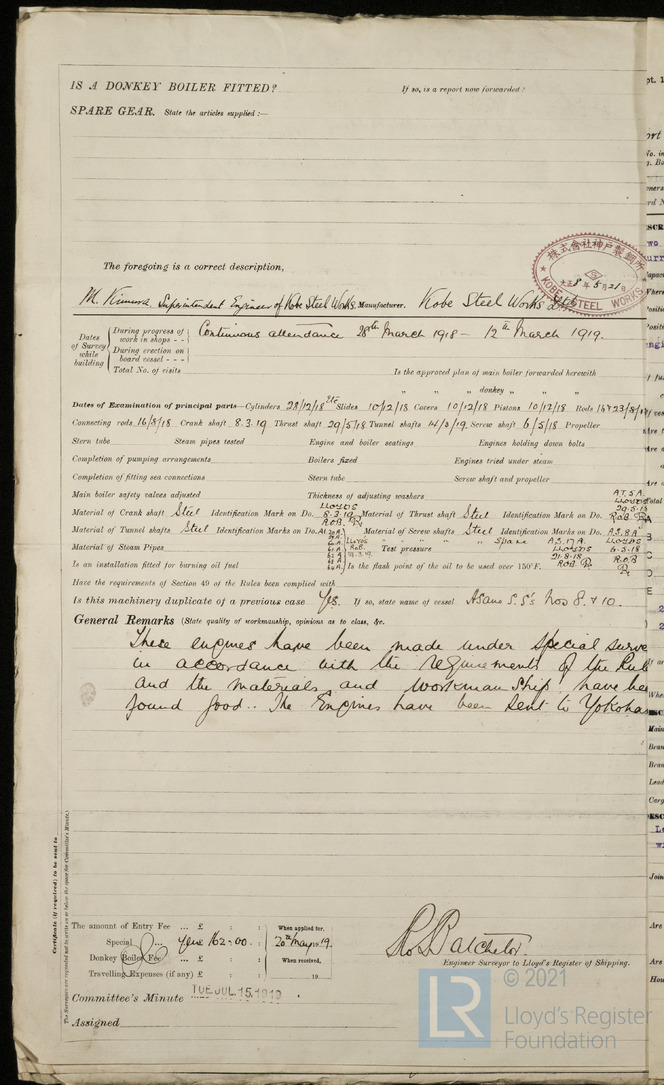 IS A DONKEY BOILER FITTED? If so, is a report now forwarded?
SPARE GEAR. State the articles supplied :—
The foregoing is a correct description,
株式會社神戸製鋼所
KOBE STEEL WORKS
M. Kimura Superintendent Engineer of Kobe Steel Works Manufacturer. Kobe Steel Works Ltd
Dates of Survey while building
During progress of work in shops - - Continuous attendance 28th March 1918 — 12th March 1919.
During erection on board vessel - - -
Total No. of visits Is the approved plan of main boiler forwarded herewith
" " " donkey " " "
Dates of Examination of principal parts—Cylinders 28/12/18 Etc Slides 10/12/18 Covers 10/12/18 Pistons 10/12/18 Rods
Connecting rods 16/8/18 Crank shaft 8.3.19 Thrust shaft 29/5/18 Tunnel shafts Screw shaft 6/5/18 Propeller
Stern tube Steam pipes tested Engine and boiler seatings Engines holding down bolts
Completion of pumping arrangements Boilers fixed Engines tried under steam
Completion of fitting sea connections Stern tube Screw shaft and propeller
Main boiler safety valves adjusted Thickness of adjusting washers
Material of Crank shaft Steel Identification Mark on Do. LLOYDS 8.3.19 R.O.B. Material of Thrust shaft Steel Identification Mark on Do. A.T.5.A. LLOYDS 29.5.18 R.O.B.
Material of Tunnel shafts Steel Identification Marks on Do. LLOYDS R.O.B. Material of Screw shafts Steel Identification Marks on Do. A.S.8A LLOYDS 6.5.18 R.O.B
" " " " Spare A.S.17A. LLOYDS 21.8.18. R.O.B.
Material of Steam Pipes Test pressure
Is an installation fitted for burning oil fuel Is the flash point of the oil to be used over 150°F.
Have the requirements of Section 49 of the Rules been complied with
Is this machinery duplicate of a previous case Yes. If so, state name of vessel Asano S.S's Nos 8. & 10.
General Remarks (State quality of workmanship, opinions as to class, &c.
These engines have been made under special surve
in accordance with the requirements of the Rul
and the materials and workmanship have be
found good.. The Engines have been sent to Yokoha
Certificate (if required) to be sent to
The Surveyors are requested not to write on or below the space for Committee's Minute.
The amount of Entry Fee ... £ : : When applied for,
Special ... Yen 162=00. : 20th May 1919.
Donkey Boiler Fee ... £ : : When received,
Travelling Expenses (if any) £ : : 19
R. O. Batchelor
Engineer Surveyor to Lloyd's Register of Shipping.
Committee's Minute TUE.JUL.15.1919
Assigned
LR
© 2021
Lloyd's Register
Foundation